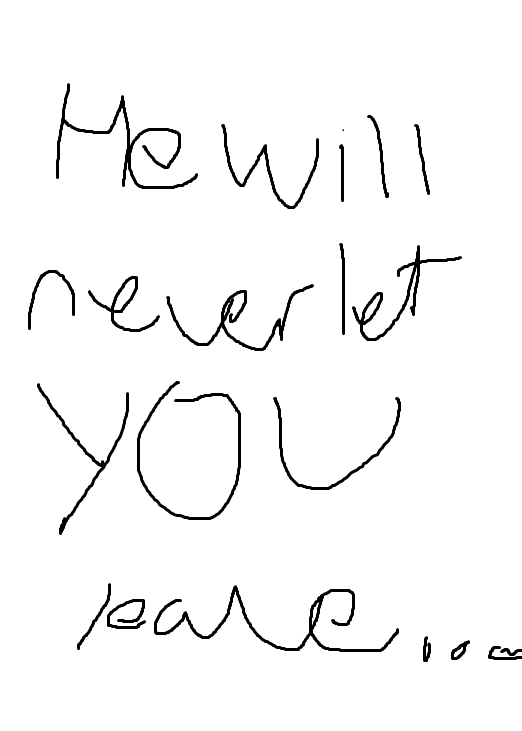 He will
never let
you
leave...